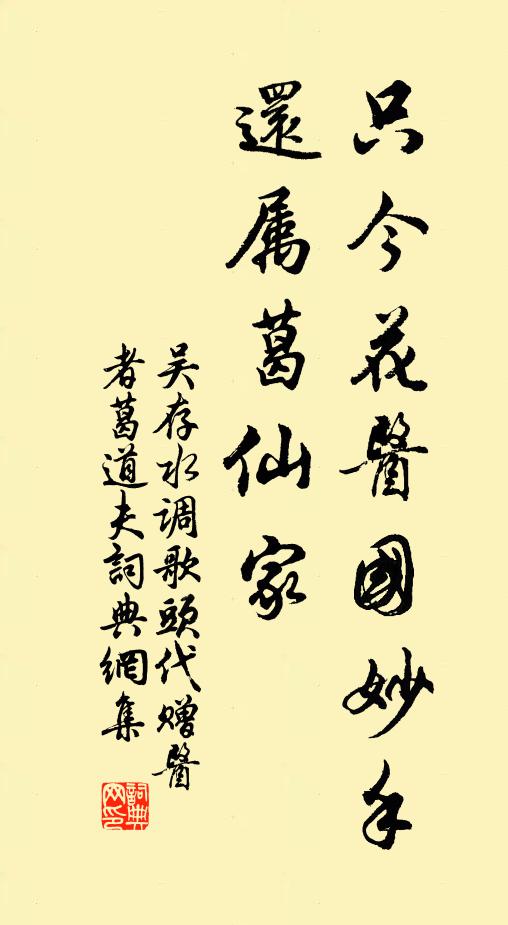 只今花醫國妙手
還属葛仙家
吴存水调歌頭代赠醫
者葛道夫詞典網集
詞典
网印